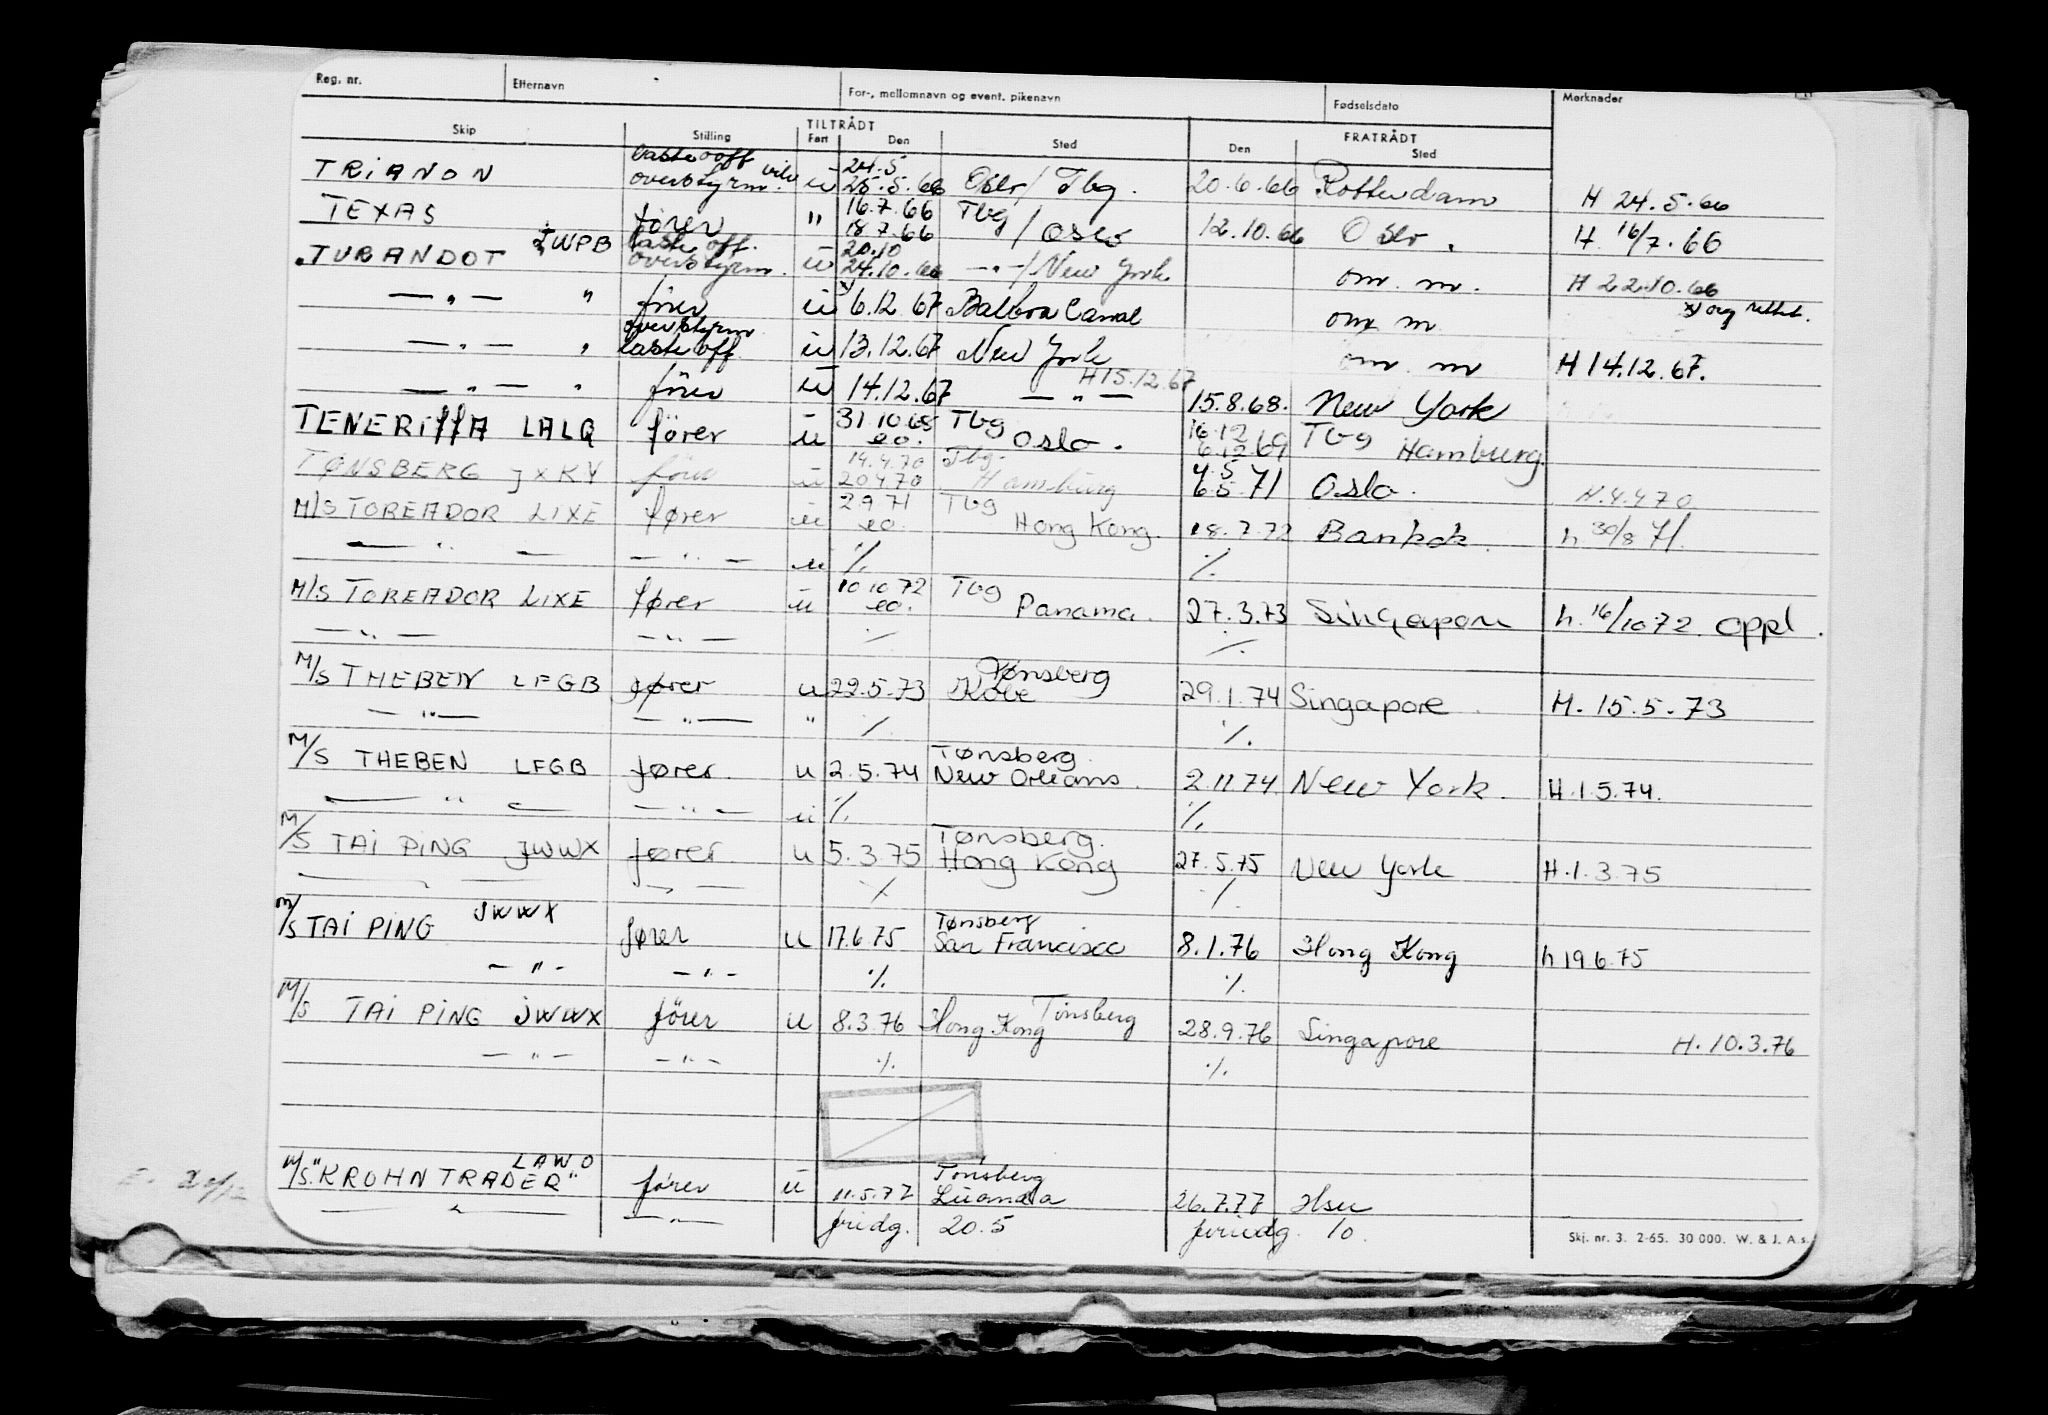 Reg. nr. Etternavn For-, mellomnavn og event. pikenavn Fødselsdato Merknader
TILTRÅDT FRATRÅDT
Skip Stilling Fart Den Sted Den Sted
laste off 24.5
TRIANON overstyrm. vik u 25.5.66 Oslo / Tbg. 20.6.66 Rotterdam H 24.5.66
16.7.66 Tbg
TEXAS fører " 18.7.66 / Oslo 12.10.66 Oslo. H. 16/7.66
laste off. 20.10
TUBANDOT JWPB overstyrm. u 24.10.66 —"—/ New York om. m. H 22.10.66
— " — " fører u x 6.12.67 Balboa Canal om m x) og rettet.
overstyrm
— " — " laste off u 13.12.67 New York om. m H 14.12.67.
H 15.12.67
— " — " fører u 14.12.67 — " — 15.8.68. New York
31.10.68 Tbg 16.12 Tbg
TENERiffA LALQ fører u eo. Oslo. 6.12.69 Hamburg.
14.4.70 Tbg. 4.5
TØNSBERG JXKY fører u 20470 Hamburg 6.5.71 Oslo. H.4.470
2971 Tbg
M/S TOREADOR LIXE fører u eo. Hong Kong. 18.2.72 Bankok. h 30/8 71.
— " — — " — u % %
10 10 72 Tbg
M/S TOREADOR LIXE fører u eo. Panama. 27.3.73 Singapore h. 16/10 72. oppl.
— " — — " — % %
Tønsberg
M/S THEBEN LFGB fører u 22.5.73 Kobe 29.1.74 Singapore. H. 15.5.73
— " — — " — " % %
Tønsberg
M/S THEBEN LFGB fører. u 2.5.74 New Orleans. 2.11.74 New York. H.1.5.74.
— " — — " — u % %
Tønsberg.
M/S TAi PiNG JWWX fører u 5.3.75 Hong Kong 27.5.75 New York H.1.3.75
— " — — " — % %
JWWX Tønsberg
M/S TAI PING fører u 17.6.75 San Francisco 8.1.76 Hong Kong h 19.6.75
— " — — " — % %
Tønsberg
M/S TAI PING JWWX fører u 8.3.76 Hong Kong 28.9.76 Singapore H. 10.3.76
— " — — " — % %
LAWO Tønsberg
M/S. "KROHN TRADER" fører u 11.5.77 Luanda 26.7.77 Hsu
— " — — " — fridg. 20.5 feriedg. 10.
Skj. nr. 3. 2-65. 30 000. W. & J. A.s.